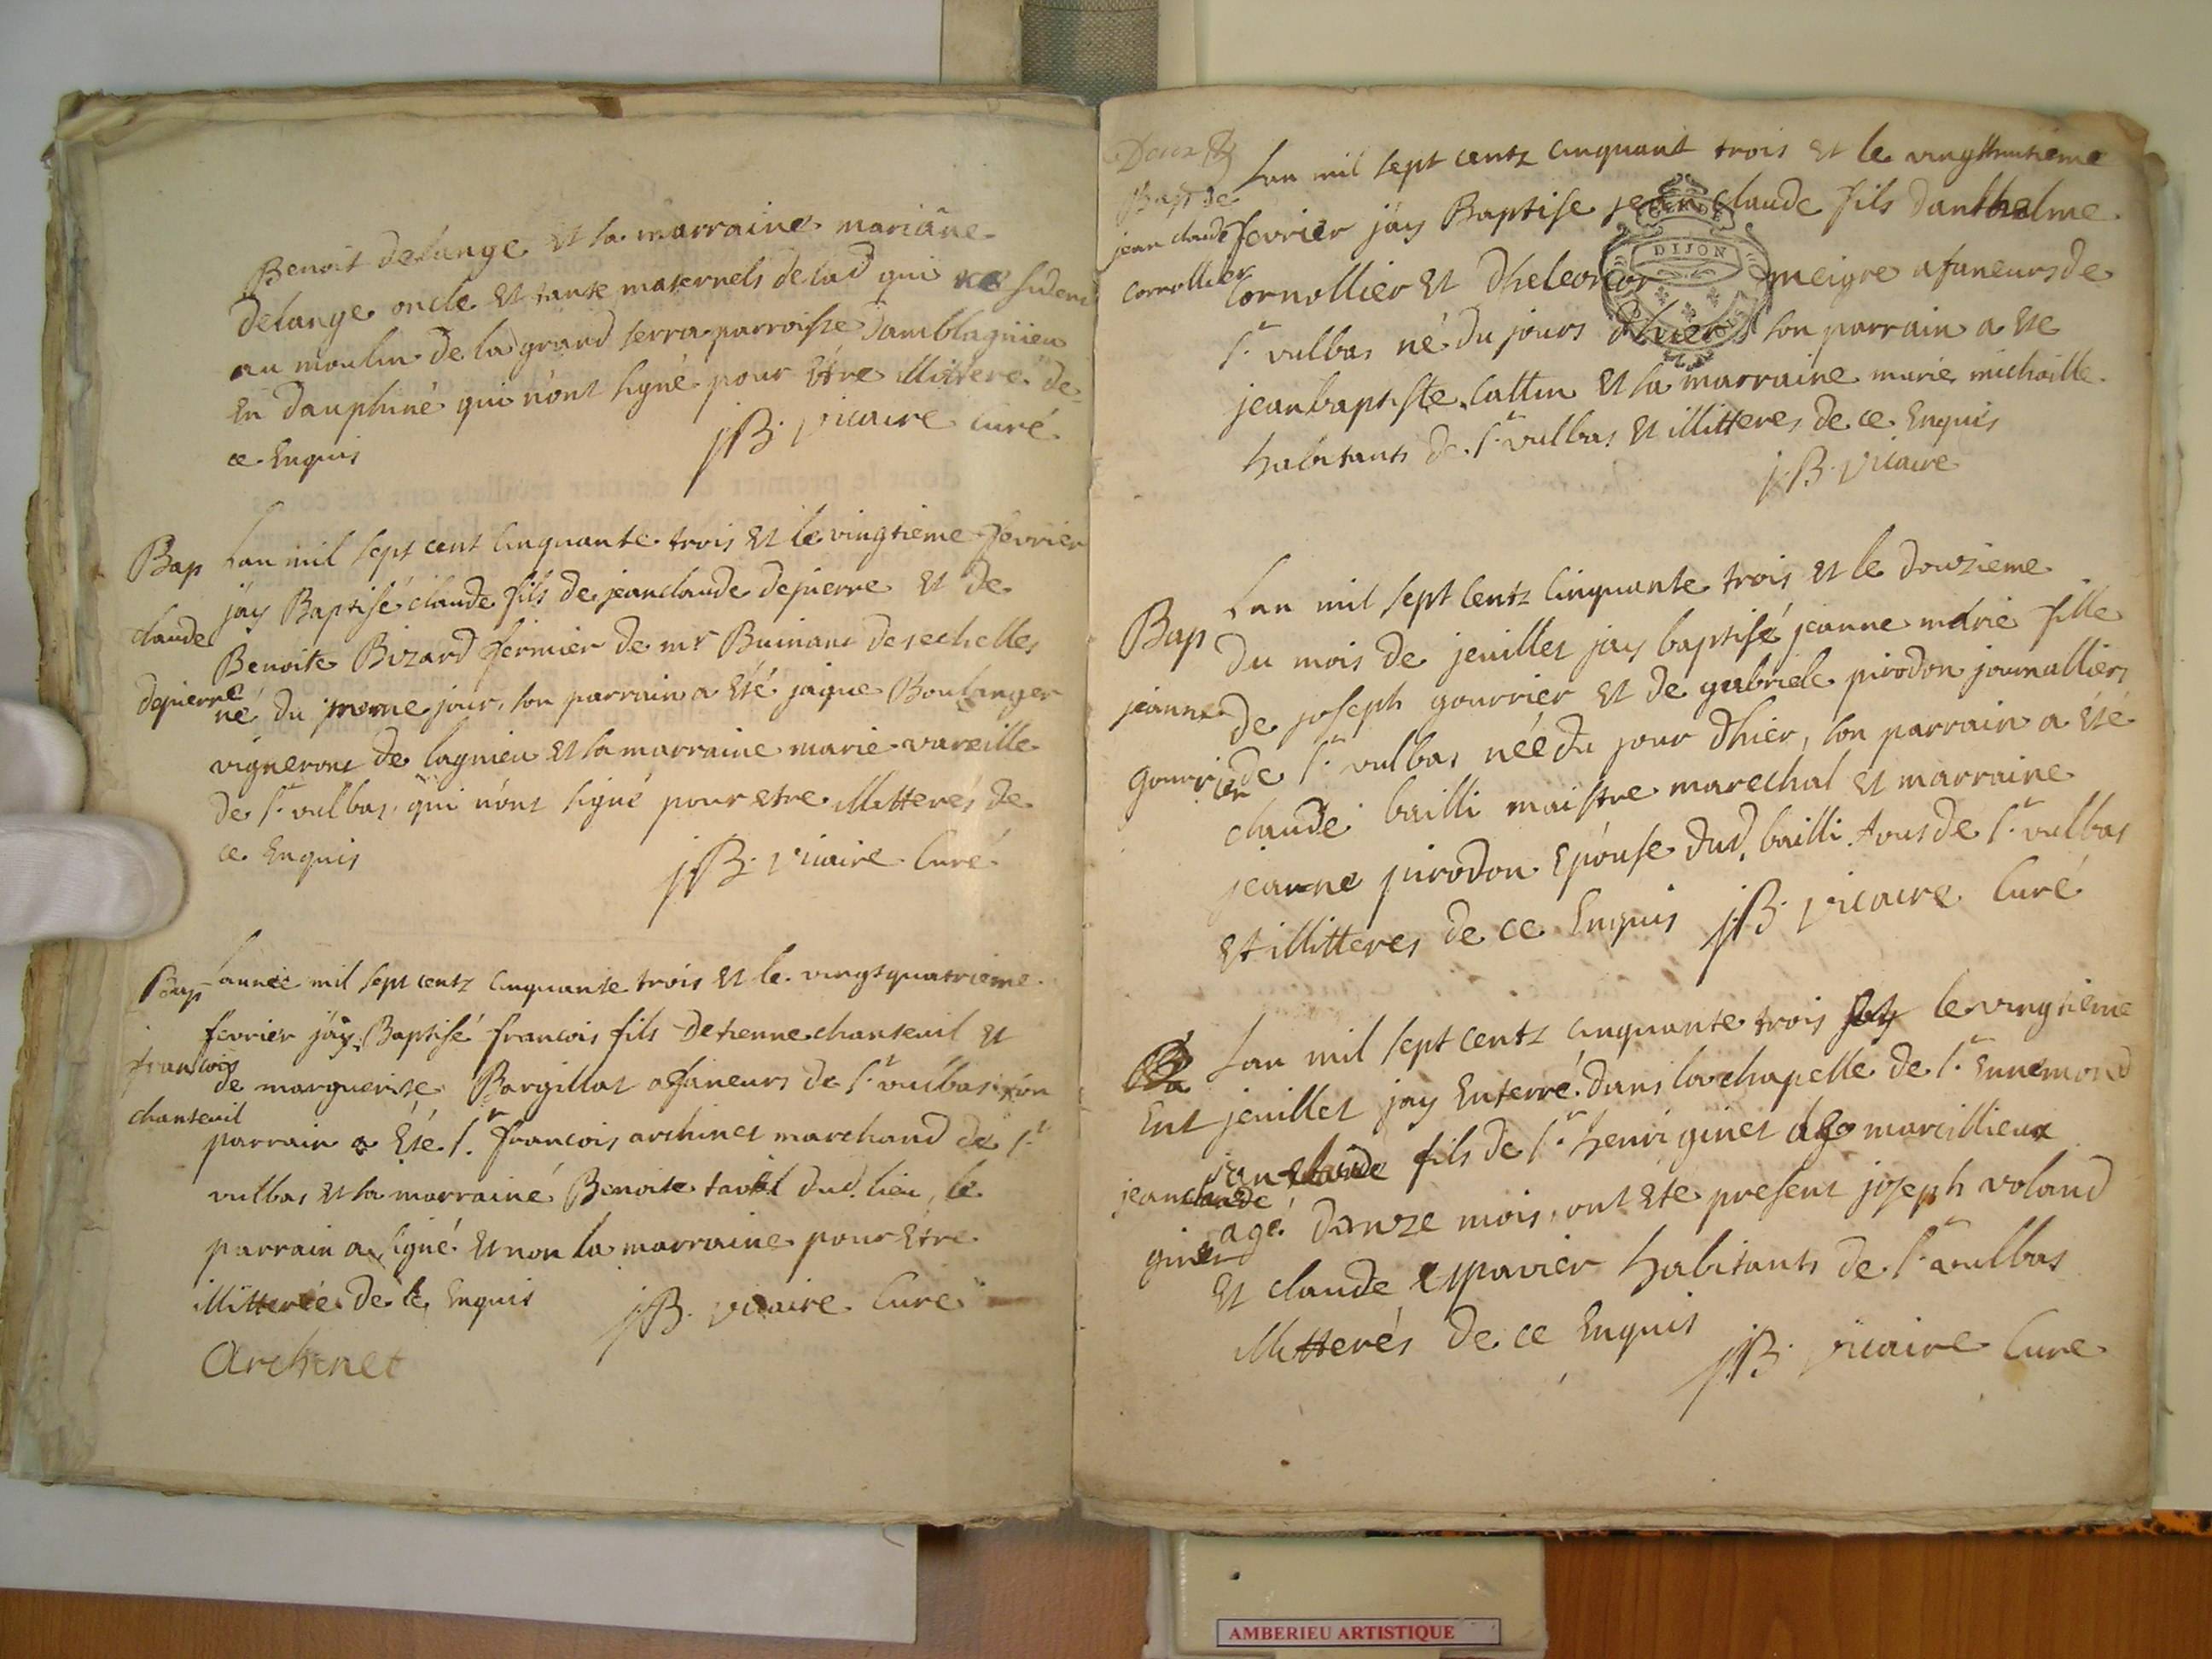 Benoit delange et sa marraine mariañe
delange oncle et tante maternels de lad qui resident
au moulin de la grand serra parroisse damblagnieu
en dauphiné qui n'ont signé pour être illittere de
ce Enquis
j.B. vicaire curé
Bap
claude
depierre
Lan mil sept cent cinquante trois et le vingtieme fevrier
jay Baptisé claude fils de jean claude depierre et de
Benoite Bizard fermier de mr Buinant desechelles
né du meme jour, son parrain a été jaque Boulanger
vigneront de lagnieu et la marraine marie vareille
de St vulbas, qui n'ont signé pour etre illitterés de
ce Enquis
j.B. vicaire Curé
Bap
francois
chanteuil
Lannée mil sept centz cinquante trois et le vingtquatrieme
fevrier jay Baptisé francois fils detienne chanteuil et
de marguerite Bargillat afaneurs de St vulbas son
parrain a été Sr francois archinet marchand de St
vulbas et la marraine Benoite dud. lieu, le
parrain a signé et non la marraine pour etre
illitterée de ce Enquis
j.B. vicaire Curé
Archinet
Bap de
jean claude
cornollier
Lan mil sept centz cinquant trois et le vingthuitieme
fevrier jay Baptise jean claude fils danthelme
Cornollier et dheleonor meigre afaneurs de
St vulbas né du jours dhier son parrain a ete
jean baptiste Cattin et la marraine marie michaille
habitants de St vulbas et illitteres de ce Enquis
j.B. vicaire
GENER
DIJON
Bap
jeanne
gourrier
Lan mil sept centz cinquante trois et le douzieme
du mois de jeuillet jay baptisé jeanne marie fille
de joseph gourrier et de gabriele pirodon journalliers
de St vulbas née du jour dhier, son parrain a été
claude bailli maistre marechal et marraine
jeanne pirodon Epouse dud. bailli tous de St vulbas
et illitteres de ce Enquis
j.B. vicaire Curé
Ent
jean claude
ginet
Lan mil sept centz cinquante trois le vingtieme
jeuillet jay Enterré dans la chapelle de St Ennemond
jean claude fils de Sr henri ginet marcillieux
agé donze mois, ont été present joseph voland
et claude Epavier habitants de St vulbas
illitterés de ce Enquis
j.B. vicaire Cure
AMBERIEU ARTISTIQUE